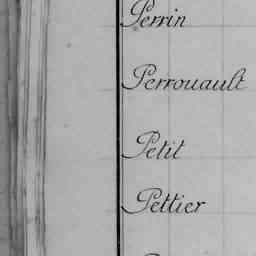 Perrin
Perrouault
Petit
Pettier